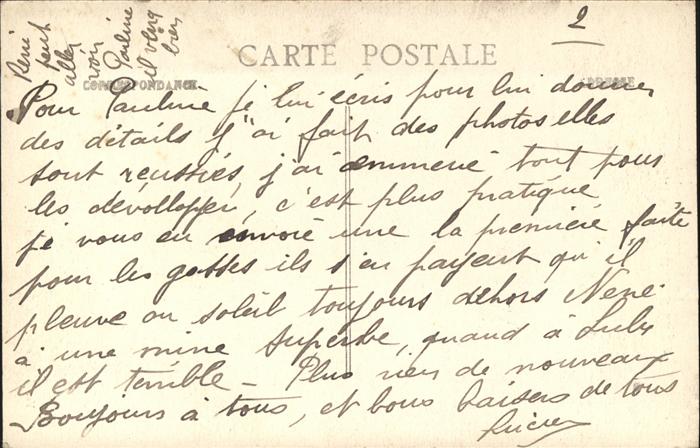 2
René
peut
aller
voir
Pauline
il
bien
CARTE POSTALE
CORRESPONDANCE
Pour Pauline je lui écris pour lui donner
des détails j'ai fait des photos elles
sont reussiés, j'ai emmené tout pour
les dévollopér, c'est plus pratique
je vous en envoie une la première faite
pour les gosses ils s'en payent qu'il
pleuve ou soleil toujours dehors Néné
à une mine superbe, quand à Lulu
il est terrible - Plus rien de nouveaux
Bonjours à tous, et bons baisers de tous
Lucien